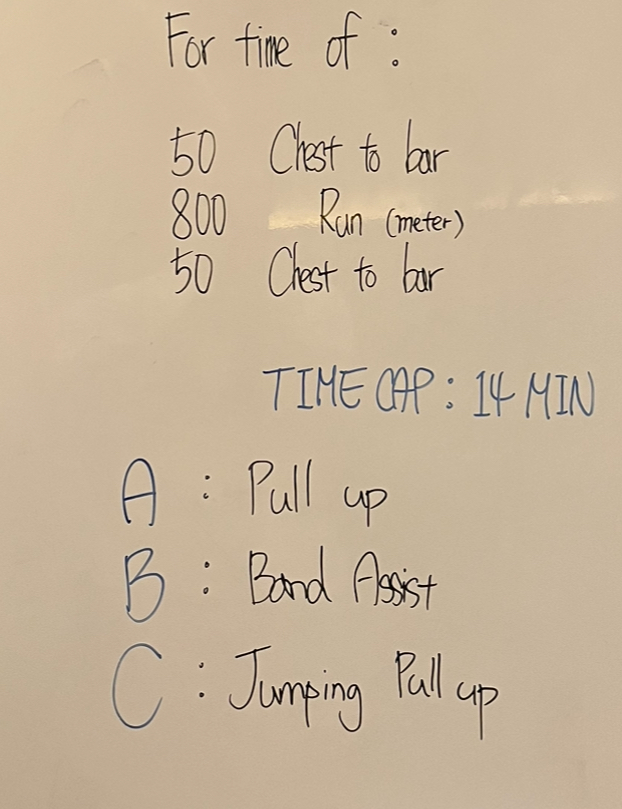 For time of :
50 Chest to bar
800 Run (meter)
50 Chest to bar
TIME CAP : 14 MIN
A : Pull up
B : Band Assist
C : Jumping Pull up